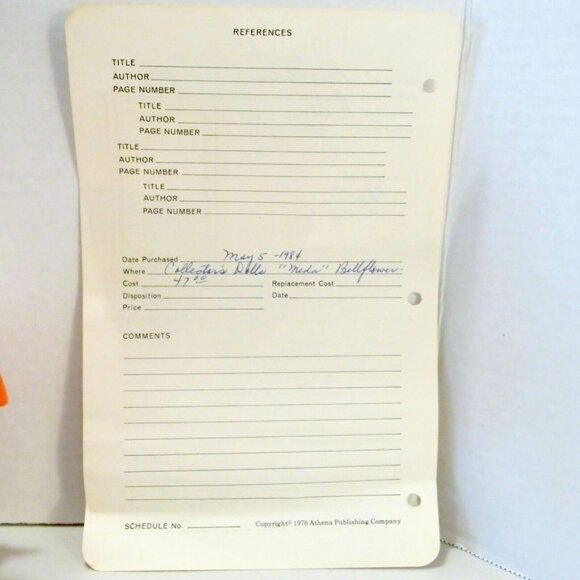 REFERENCES
TITLE
AUTHOR
PAGE NUMBER
TITLE
AUTHOR
PAGE NUMBER
TITLE
AUTHOR
PAGE NUMBER
TITLE
AUTHOR
PAGE NUMBER
Date Purchased May 5 - 1984
Where Collector's Dolls "Meda" Bellflower.
Cost 47.00 Replacement Cost
Disposition Date
Price
COMMENTS
SCHEDULE No. Copyright© 1976 Athena Publishing Company